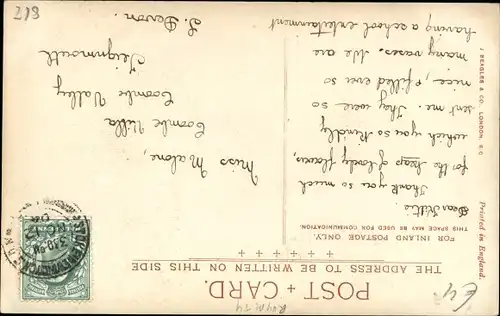 POST + CARD.
THE ADDRESS TO BE WRITTEN ON THIS SIDE
FOR INLAND POSTAGE ONLY.
THIS SPACE MAY BE USED FOR COMMUNICATION.
Dear Kittie.
Thank you so much
for the heap of lovely flowers,
which you so kindly
sent me. They were so
nice, & filled ever so
many vases. We are
having a school entertainment
Miss Malone,
Coombe Villa
Coombe Valley
Teignmouth
S. Devon.
J. BEAGLES & CO., LONDON, E.C.
Printed in England.
£4
213